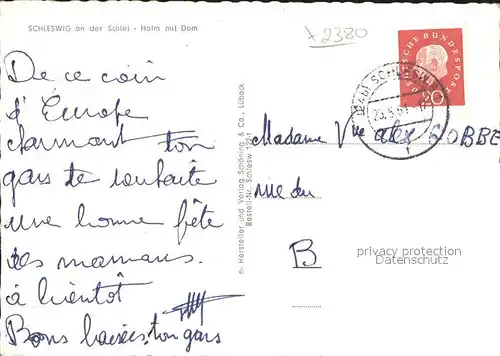 SCHLESWIG an der Schlei - Holm mit Dom
x 2380
DEUTSCHE BUNDESPOST
20
SCHLESWIG
De ce coin
d'Europe
charmant ton
gars te souhaite
une bonne fête
des mamans.
à bientôt
Bons baisers, ton gars
Hersteller und Verlag Schöning & Co., Lübeck
Bestell-Nr. Schlesw
Madame Vve alex GOBBE
rue du
B
privacy protection
Datenschutz